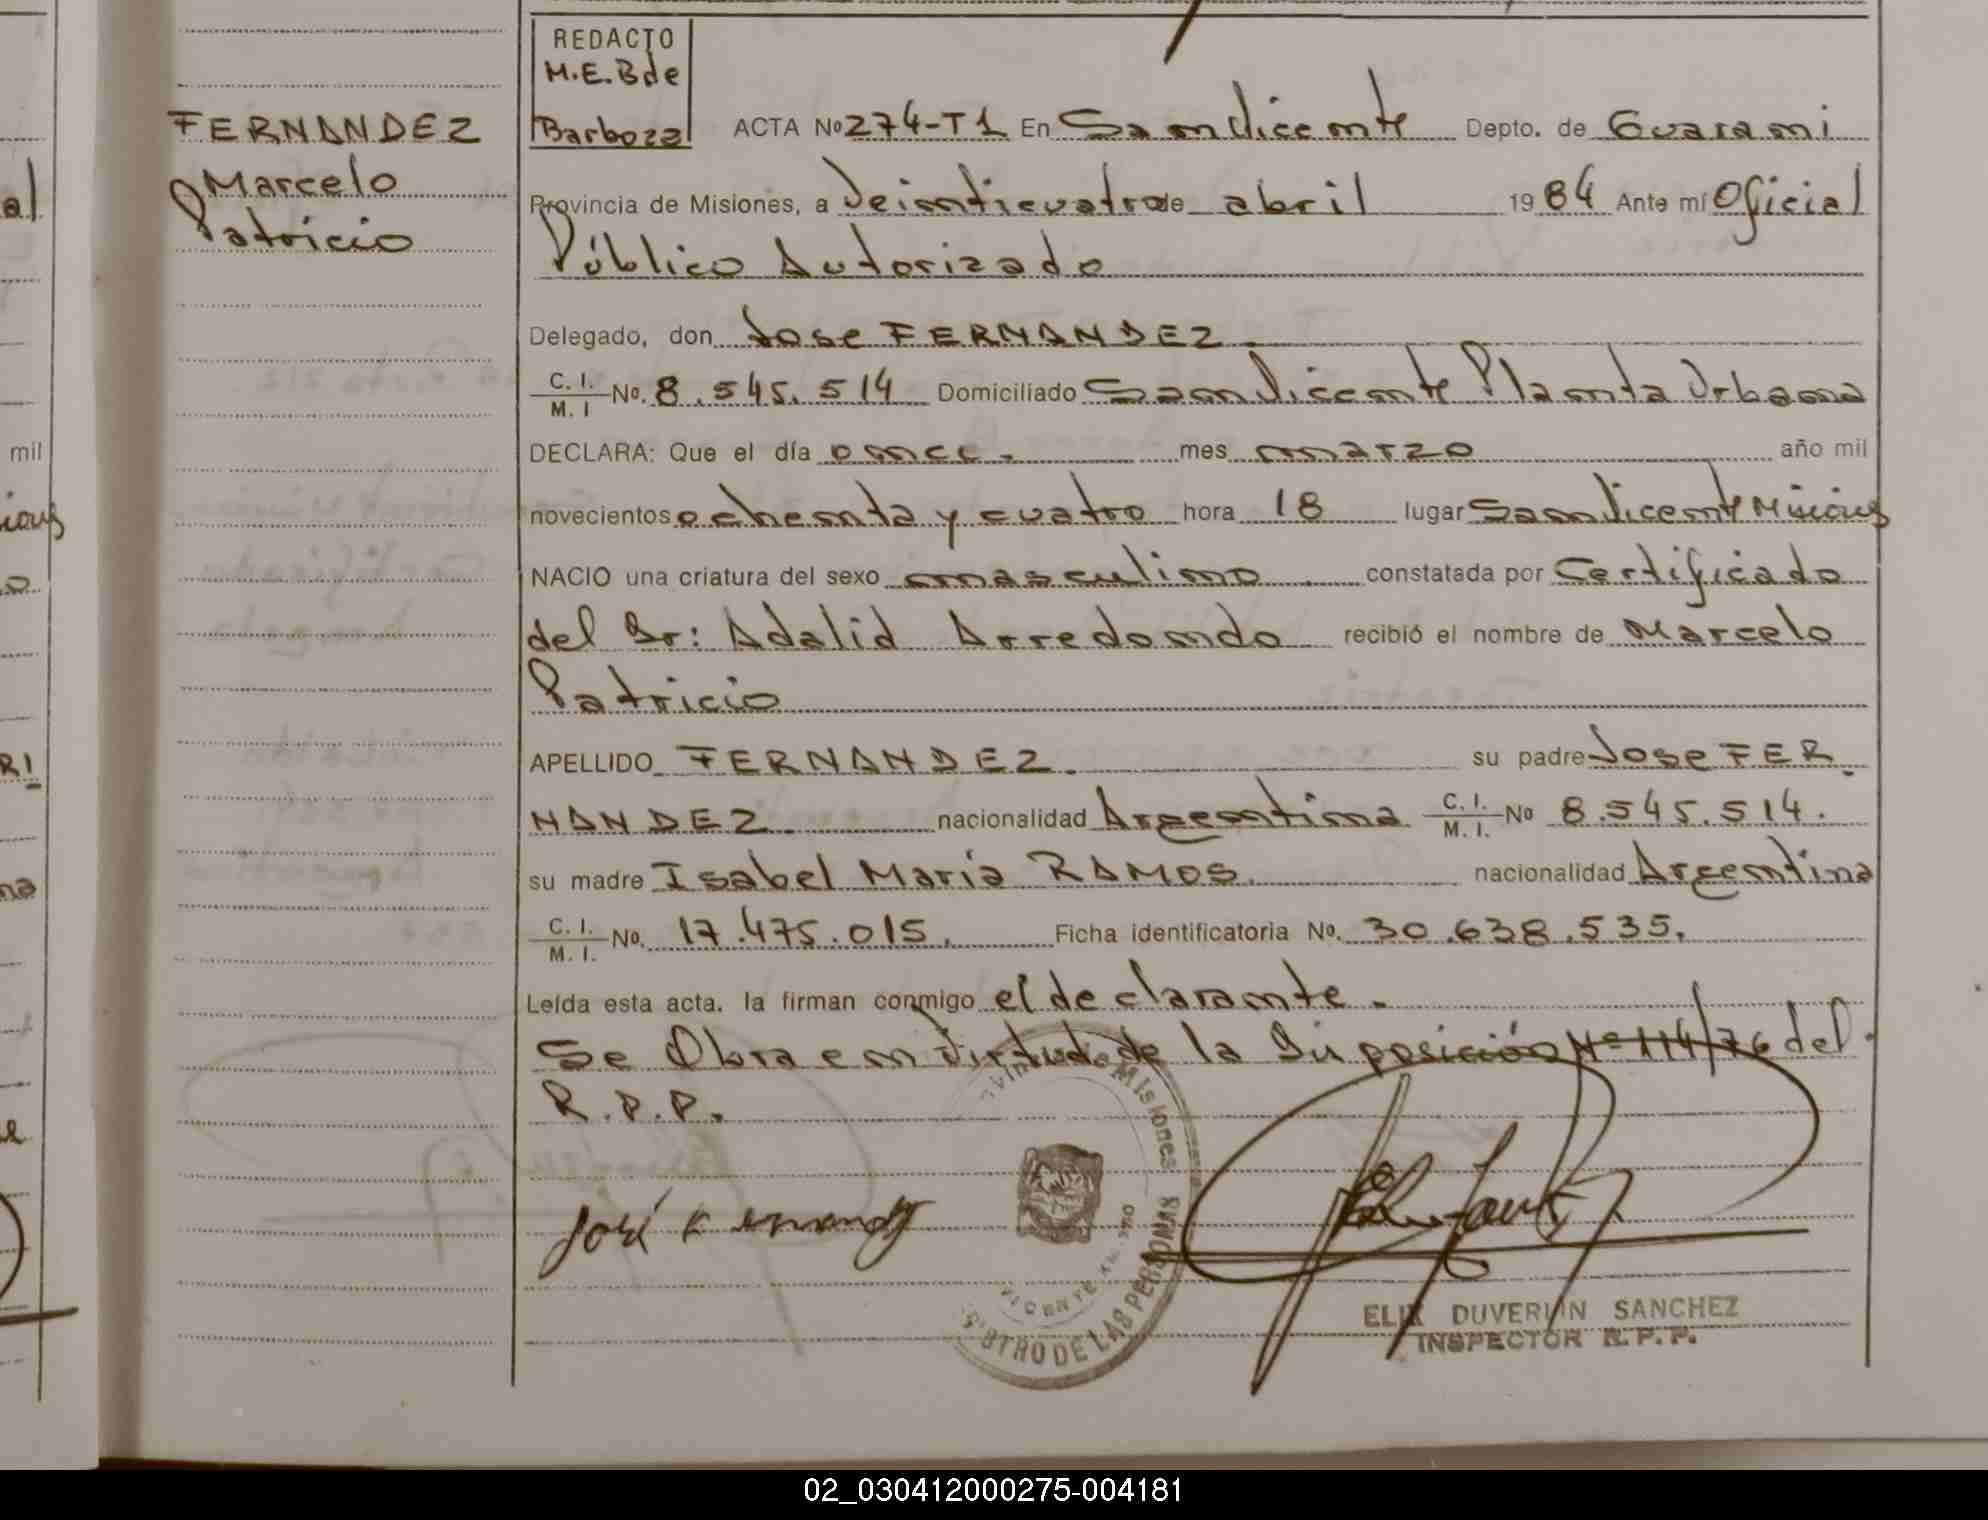 REDACTO
M.E.B de
Barboza
FERNANDEZ
Marcelo
Patricio
ACTA Nº 274-T1 En San Vicente Depto. de Guarani
Provincia de Misiones, a Veinticuatro de abril 1984 Ante mí Oficial
Público Autorizado
Delegado, don Jose FERNANDEZ.
C. I. / M. I Nº. 8.545.514 Domiciliado San Vicente Planta Urbana
DECLARA: Que el día once. mes marzo año mil
novecientos ochenta y cuatro hora 18 lugar San Vicente Misiones
NACIO una criatura del sexo masculino constatada por Certificado
del Dr: Adalid Arredondo recibió el nombre de Marcelo
Patricio
APELLIDO FERNANDEZ. su padre Jose FER.
NANDEZ. nacionalidad Argentina C. I. / M. I. Nº 8.545.514.
su madre Isabel María RAMOS. nacionalidad Argentina
C. I. / M. I. Nº. 17.475.015. Ficha identificatoria Nº. 30.638.535.
Leída esta acta. la firman conmigo el declarante.
Se Obra en virtud de la Disposición Nº 114/76 del
R.P.P.
Misiones
VICENTE
DE LAS PERSONAS
José Fernandez
ELIX DUVERLIN SANCHEZ
INSPECTOR R.P.P.
mil
02_030412000275-004181